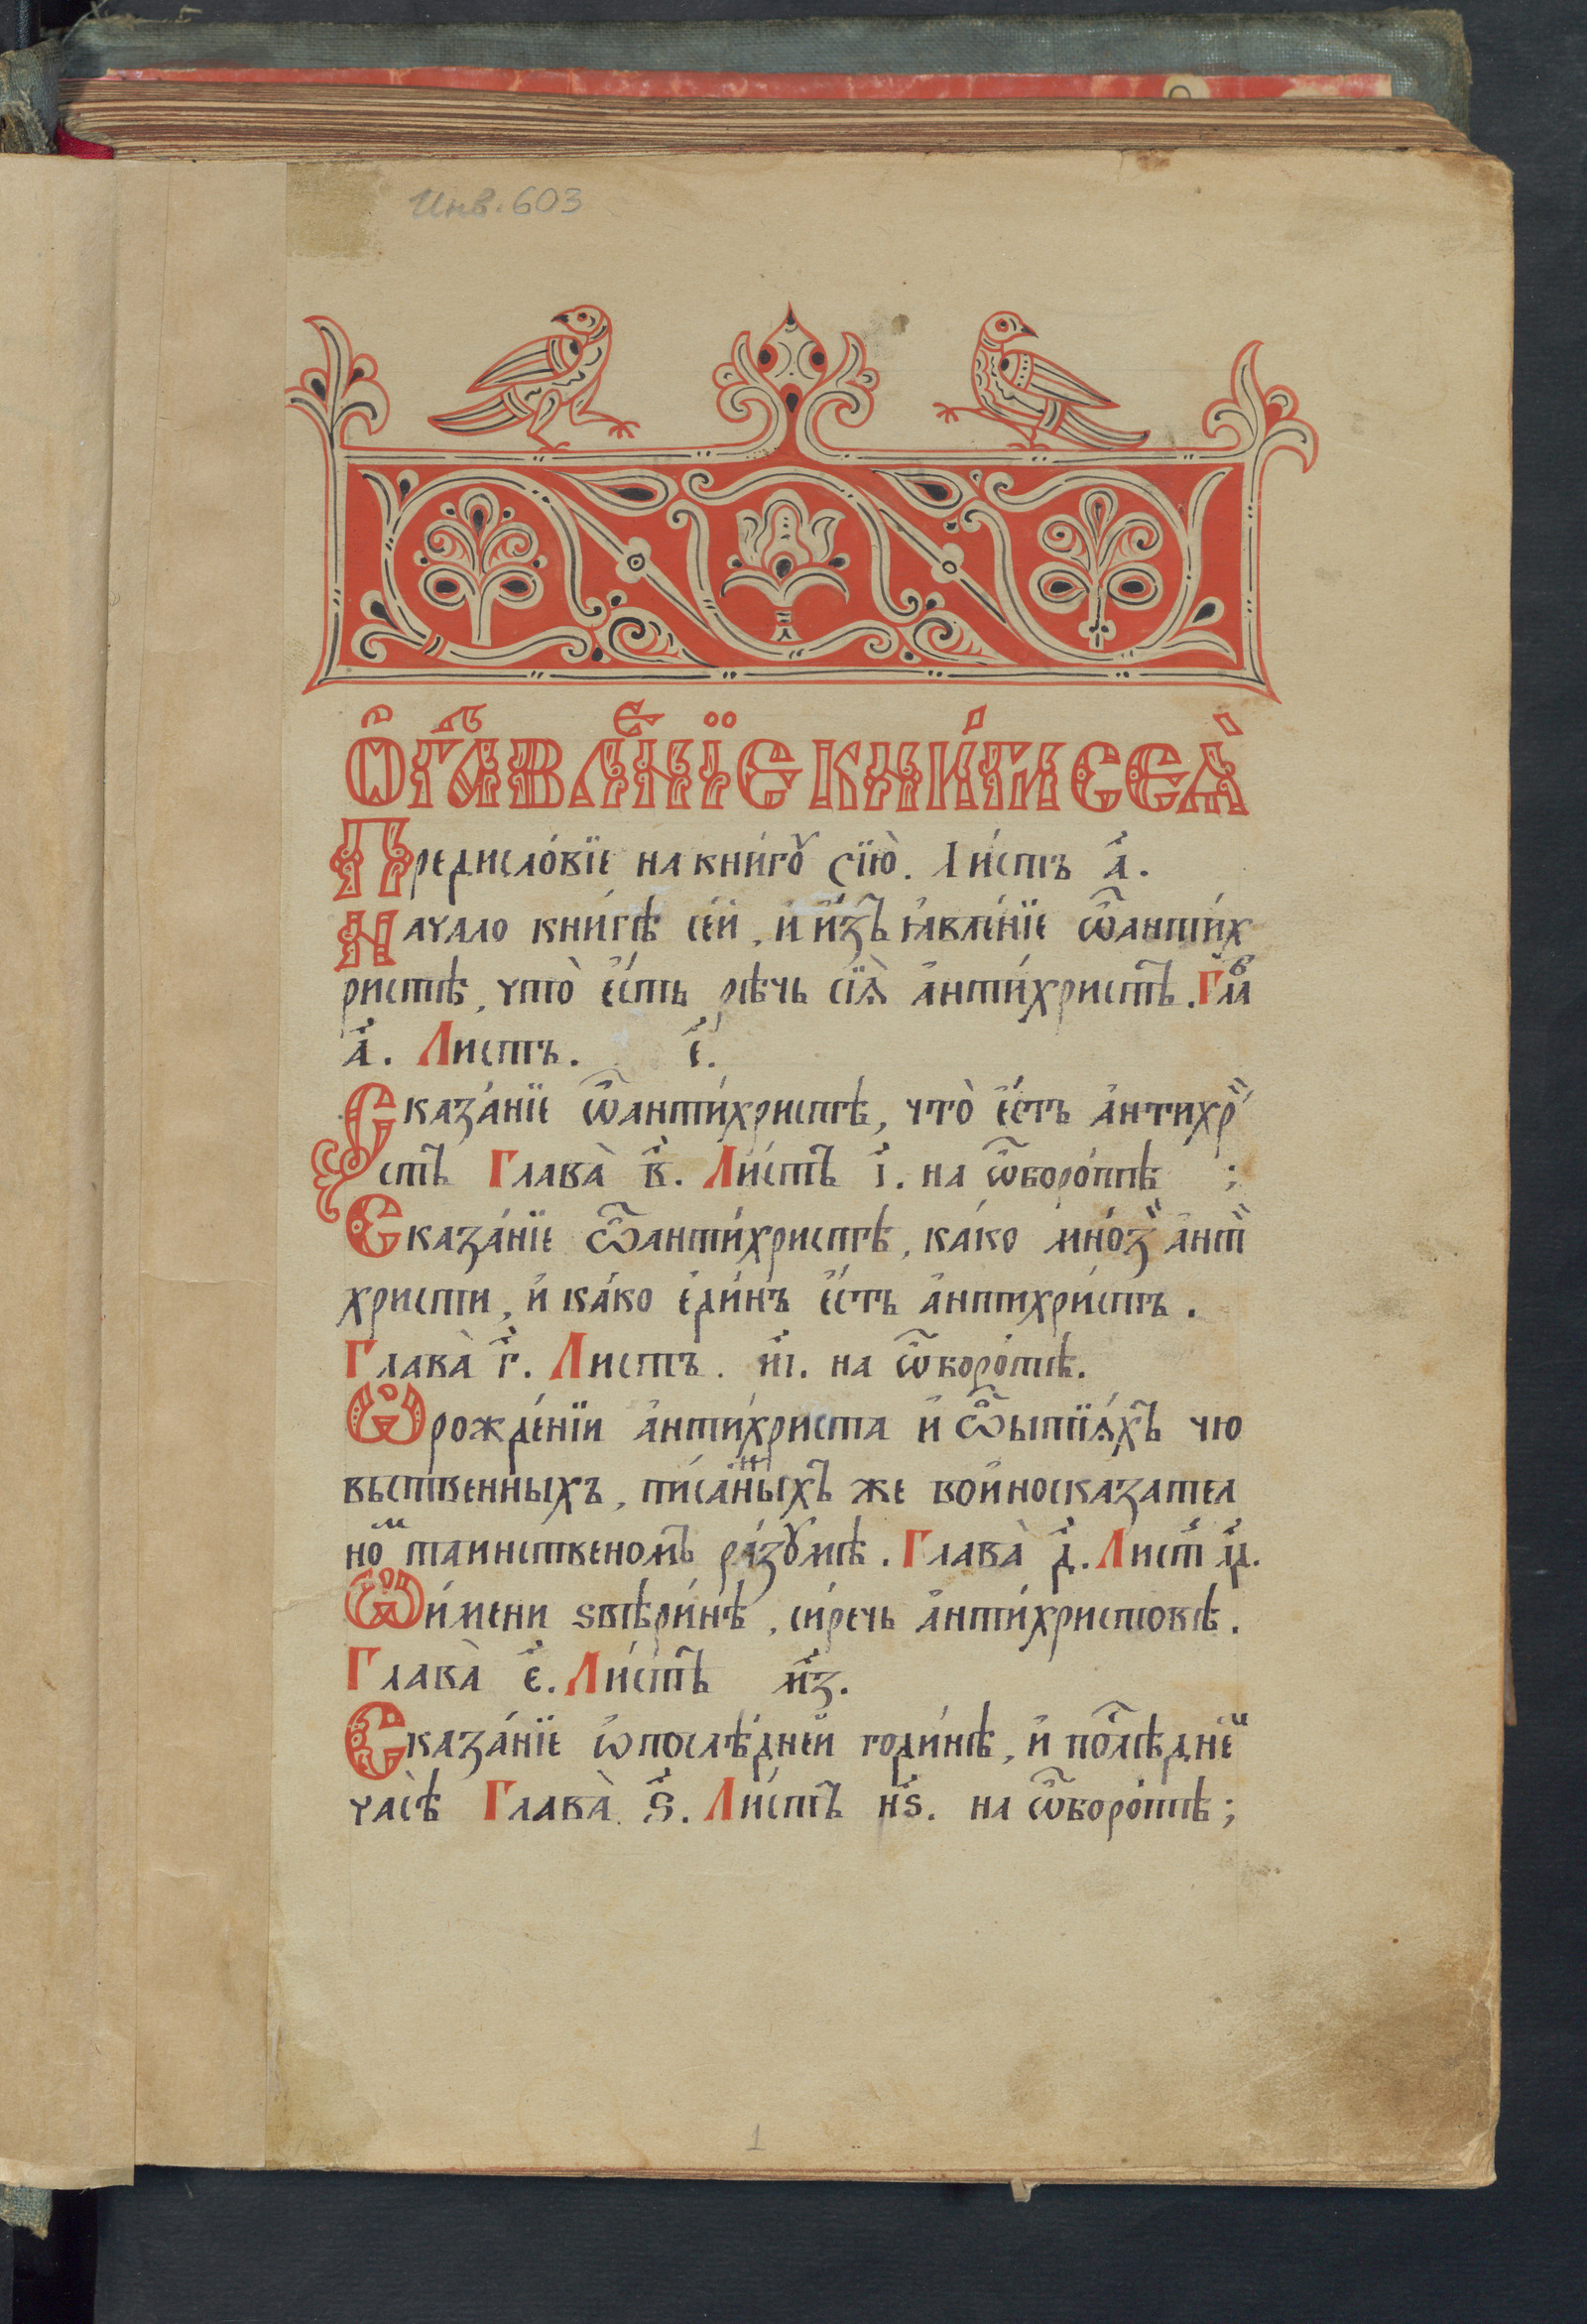 Инв. 603
Ѻ҆гла́вле́нїе кни́ги сеѧ̀
Предисло́вїе на кни́гꙋ сїю̀. Ли́стъ а҃.
Начало кни́гѣ се́й, и҆ и҆з̾ꙗвле́нїе ѿанти́х
ристѣ, что̀ є҆́сть рѣчь сїѧ̀ а҆нти́христъ. Глаⷡ҇
а҃. Листъ. є҃.
Сказа́нїе ѿанти́христѣ, что̀ є҆́сть а҆нтихрⷩ
стъ Глава̀ в҃. Ли́стъ і҃. на ѿборо́тѣ ;
Сказа́нїе ѿанти́христѣ, ка́ко мно́зⷩ а҆нтⷩ
христи, и҆ ка́ко є҆ди́нъ є҆́сть а҆нтихри́стъ.
Глава̀ г҃. Листъ. и҃і. на ѿборо́тѣ.
Ѡрожде́нїи а҆нти́христа и҆ ѿбытїѧ́хъ чю
вьственныхъ, пи́санныхъ же воиносказател
ноⷨ таинственомъ ра́зꙋмѣ. Глава̀ д҃. Листъ л҃д.
Ѡи́мени ѕвѣри́нѣ, си́речь а҆нти́христовѣ.
Глава̀ є҃. Ли́стъ м҃з.
Сказа́нїе ѡ҆после́дней годи́нѣ, и҆ посⷧ҇ѣднеⷩ
часѣ̀ Глава̀ ѕ҃. Ли́стъ н҃ѕ. на ѿборо́тѣ ;
1